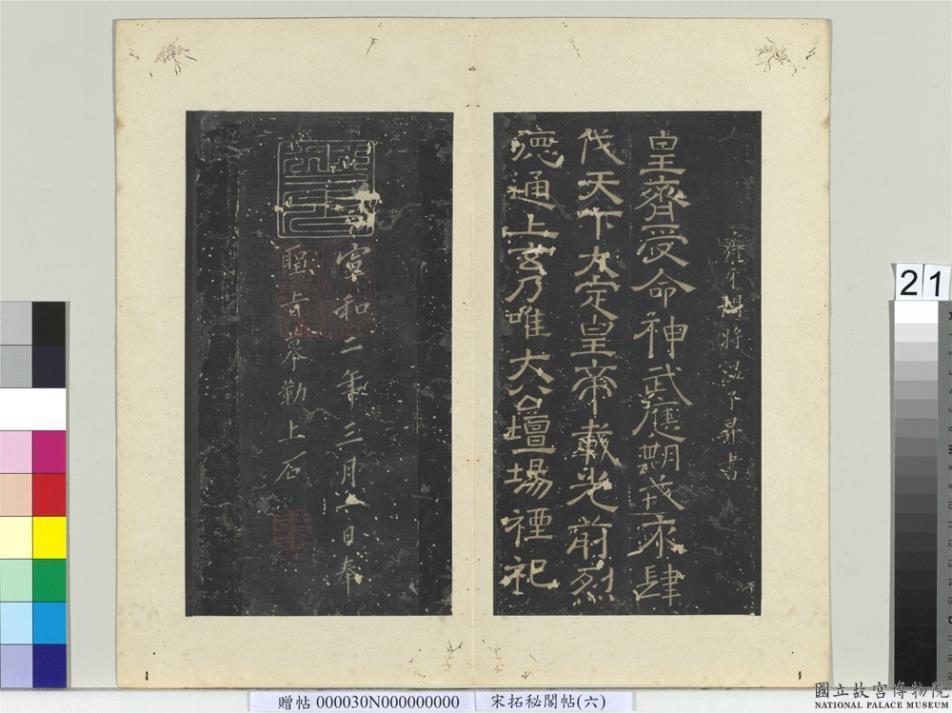 皇齊受命神武應期戎衣肆
伐天下大定皇帝載光前烈
德通上玄乃唯大公壇場禋祀
宣和二年三月八日奉
聖旨摹勒上石
21
贈帖 000030N000000000 宋拓秘閣帖(六)
國立故宮博物院
NATIONAL PALACE MUSEUM